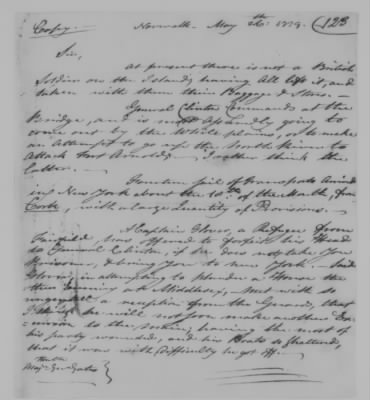 Copy. Norwalk May 26th 1779. (123
Sir,
at present there is not a British
Soldier on the Island, having all left it, and
taken with them their Baggage & Stores. —
General Clinton Commands at the
Bridge, and is most assuredly going to
come out by the White plains, or to make
an attempt to go up the North River to
attack Fort Arnold. I rather think the
latter. —
Fourteen Sail of Transports arrived
New York about the 10th of the Month, from
Cork, with a large Quantity of Provisions. —
Captain Glover, a Refugee from
Fairfield has offered to forfeit his Head
to General Clinton, if he does not take you
Prisoner, & bring you to New York. Said
Glover, in attempting to plunder a House the
other Evening at Middlesex, met with so
a reception from the Guard, that
I think he will not soon make another
to the main, having the most of
his party wounded, and his Boats so Shattered,
that it was with difficulty he got off. —
Majr. Genl. Gates